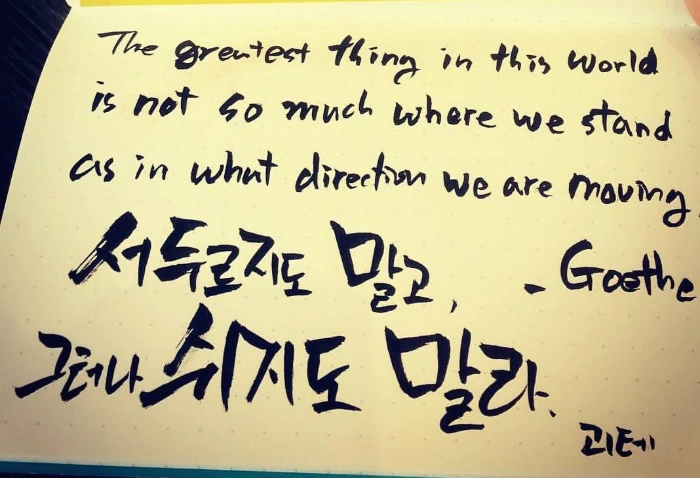 The greatest thing in this world
is not so much where we stand
as in what direction we are moving.
- Goethe
서두르지도 말고,
그러나 쉬지도 말라.
괴테